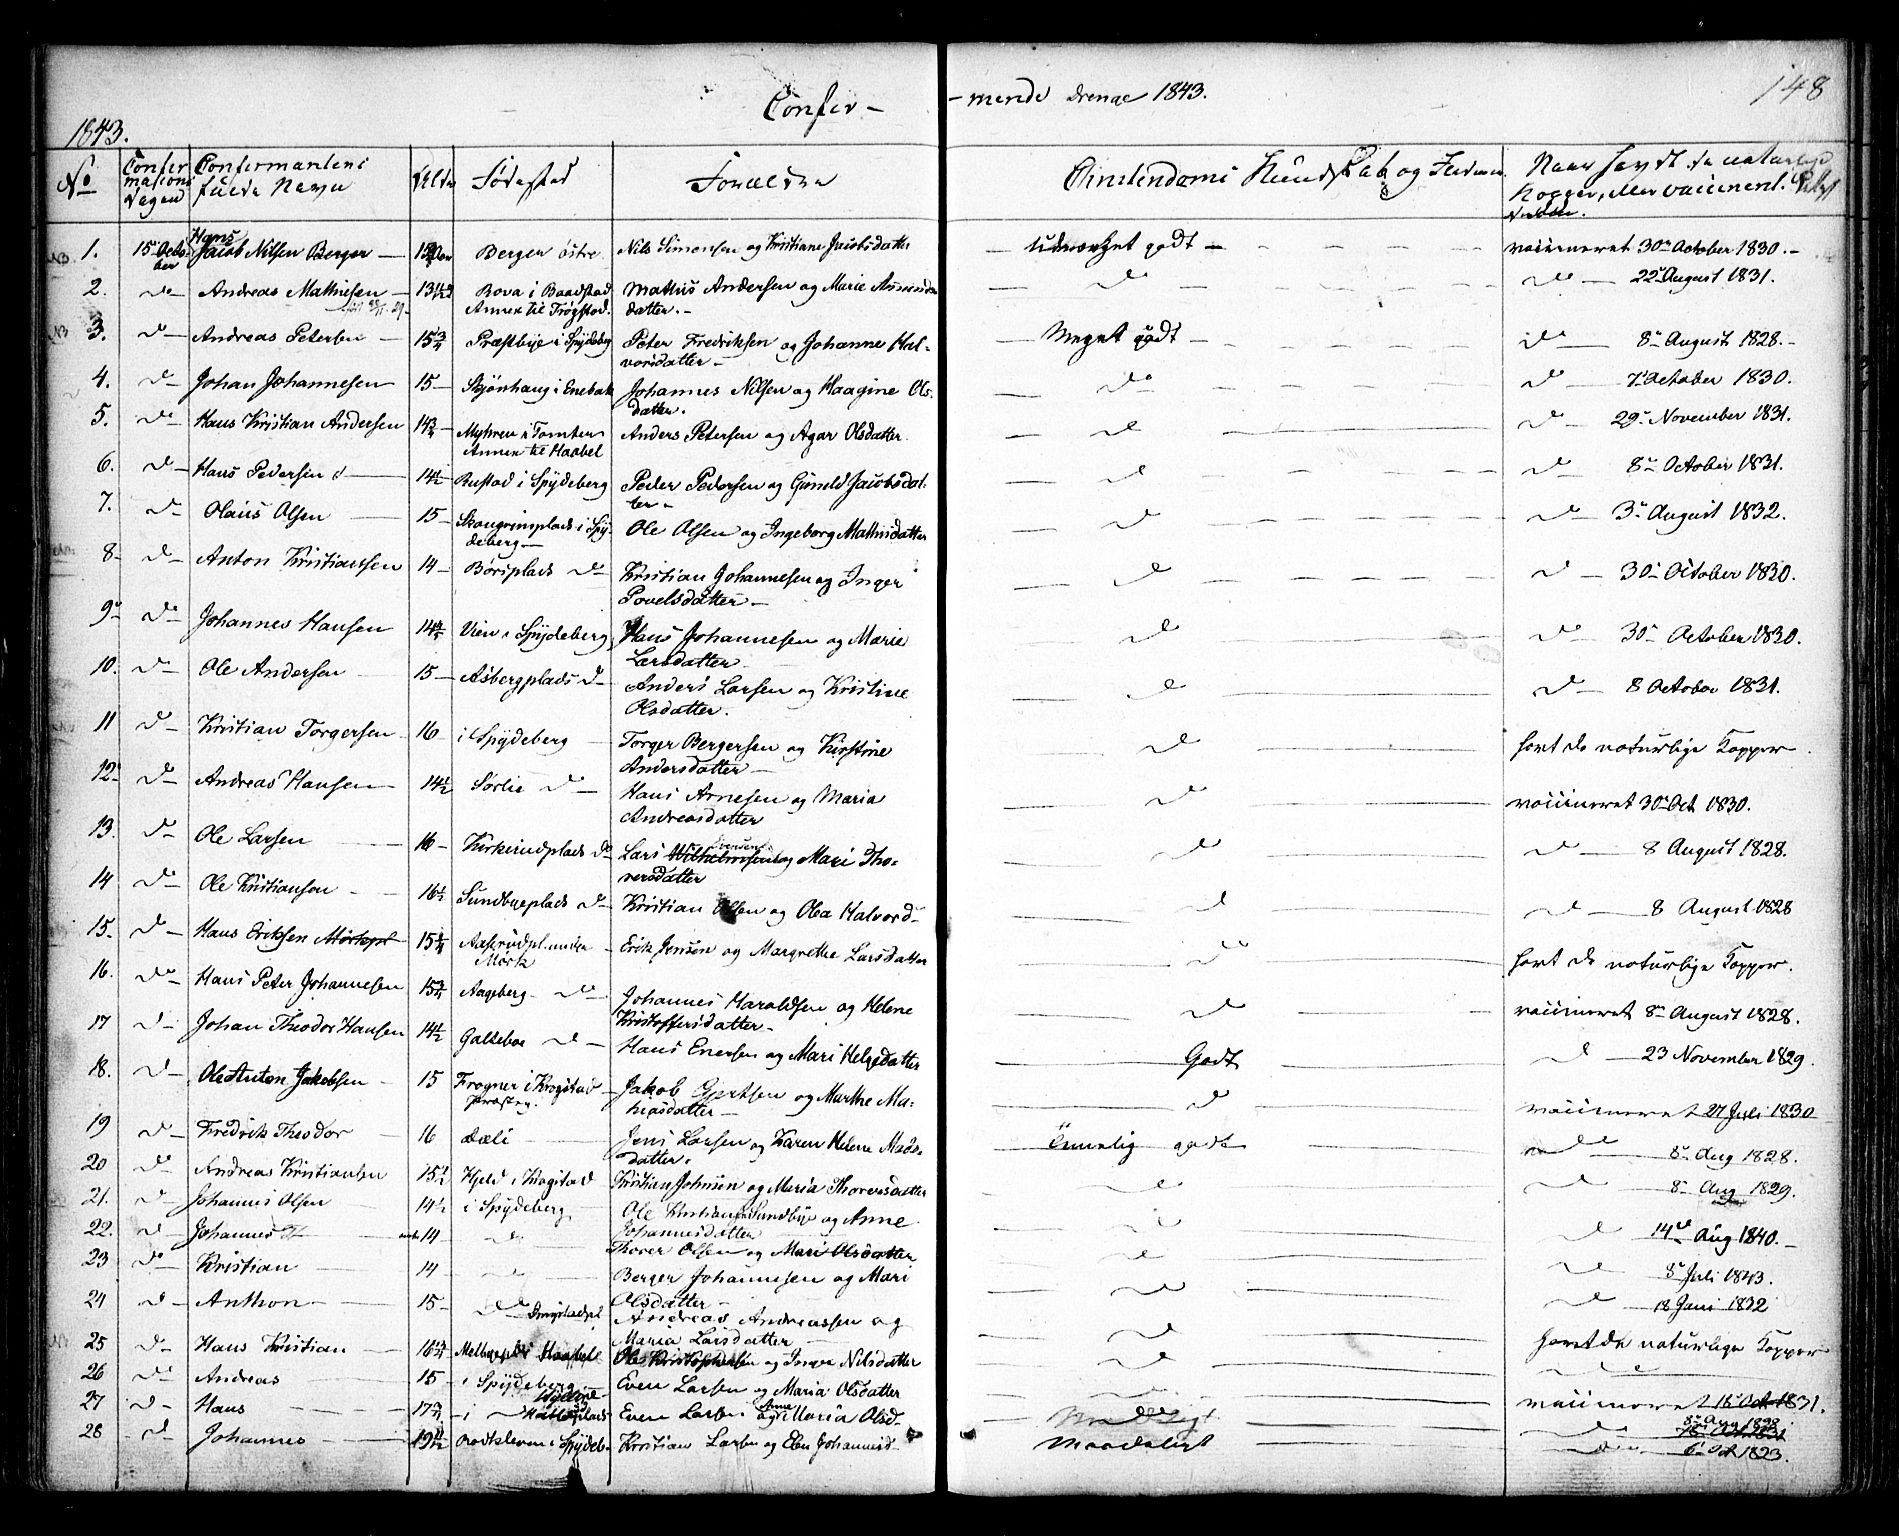 Confir- -merede Drenge 1843. 148
1843.
No Confirmations Dagen Confirmantens fulde Navn Alder Fødested Forældre Christendoms Kundskab og Naar havdt de naturlige Kopper, eller vaccineret.
1. 15 October Hans Jacob Nilsen Berger Berger østre Nils Simonsen og Kristiane Jacobsdatter udmerket godt vaccineret 30 October 1830.
2. do Andreas Mathiesen Bova i Baadstad Annex til Trøgstad. Mathis Andersen og Marie datter. do do 22 August 1831.
3. do Andreas Petersen 15 3/4 Præstbye i Spydeberg Peter Fredriksen og Johanne Halvorsdatter Meget godt do 8 August 1828.
4. do Johan Johannesen 15 Skjønhaug i Enebak Johannes Nilsen og Haagine Olsdatter. do do 7 October 1830.
5. do Hans Kristian Andersen 14 3/4 Myhren i Tomter Annex til Haabel Anders Petersen og Agar Olsdatter. do do 29 November 1831.
6. do Hans Pedersen 14 1/2 Rustad i Spydeberg Peder Pedersen og Gunild Jacobsdatter do do 8 October 1831.
7. do Olaus Olsen 15 Skougrimplads i Spydeberg Ole Olsen og Ingeborg Mathisdatter do do 3 August 1832.
8 do Anton Kristiansen 14 Børsplads do Kristian Johannesen og Inger Povelsdatter do do 30 October 1830.
9 do Johannes Hansen 14 3/4 Vien i Spydeberg Hans Johannesen og Marie Larsdatter do do 30 October 1830.
10. do Ole Andersen 15 Asbergplads do Anders Larsen og Kristine Olsdatter. do do 8 October 1831.
11 do Kristian Torgersen 16 i Spydeberg Torger Bergersen og Kirstine Andersdatter do havt de naturlige Kopper
12 do Andreas Hansen 14 1/2 Sørlie do Hans Arnesen og Maria Andreasdatter do vaccineret 30 Oct 1830.
13. do Ole Larsen 16 Kirkerudplads do Lars Wilhelmsen og Mari Thoversdatter do do 8 August 1828.
14 do Ole Kristiansen 16 1/2 Sundbyeplads do Kristian Olsen og Olea Halvord- do do 8 August 1828
15. do Hans Eriksen Mørkepl 15 3/4 Aaserudpl. under Mørk Erik Jensen og Margrethe Larsdatter do havt de naturlige Kopper.
16. do Hans Peter Johannesen 15 3/4 Aageberg do Johannes Haraldsen og Helene Kristoffersdatter do vaccineret 8 August 1828.
17 do Johan Theodor Hansen 14 1/2 Galteboe do Hans Enersen og Mari Helgedatter Godt do 23 November 1829.
18. do Ole Anton Jakobsen 15 Frogner i Krogstad Præsteg. Jakob Gjertsen og Marthe Mathiasdatter do vaccineret 27 Juli 1830
19 do Fredrik Theodor 16 Dæli Jens Larsen og Karen Helene datter. Temmelig godt do 8 Aug 1828.
20 do Andreas Kristiansen 15 1/2 i Krogstad Kristian Johnsen og Maria Thoversdatter do do 8 Aug 1829.
21. do Johannes Olsen 14 1/2 i Spydeberg Ole Kristiansen Sundbye og Anne Johannesdatter do do 14 Aug 1840.
22. do Johannes 14 do Thover Olsen og Mari Olsdatter do do 8 Juli 1843.
23 do Kristian 14 do Berger Johannesen og Mari Olsdatter do do 18 Juni 1832
24 do Anthon 15 do Andreas Andreassen og Maria Larsdatter do havt de naturlige Kopper
25 do Hans Kristian 16 3/4 Haabel Ole Kristophersen og Inger Nilsdatter do do
26 do Andreas 15 i Spydeberg Even Larsen og Maria Olsdatter do vaccineret 18 Oct 1831.
27 do Hans 17 3/4 i do Even Larsen og Anne Maria Olsd- Maadeligt do 8 Aug 1828
28 do Johannes i Spydeb- Kristian Larsen og Elen Johannesd- Maadeligt do 6 Oct 1823.